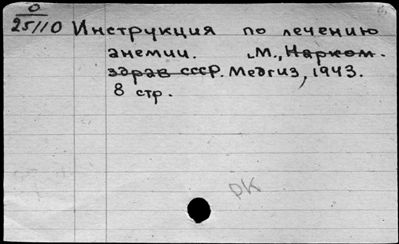 0
25110 Инструкция по лечению
анемии. М., Нарком-
здрав СССР. Медгиз, 1943.
8 стр.
РК